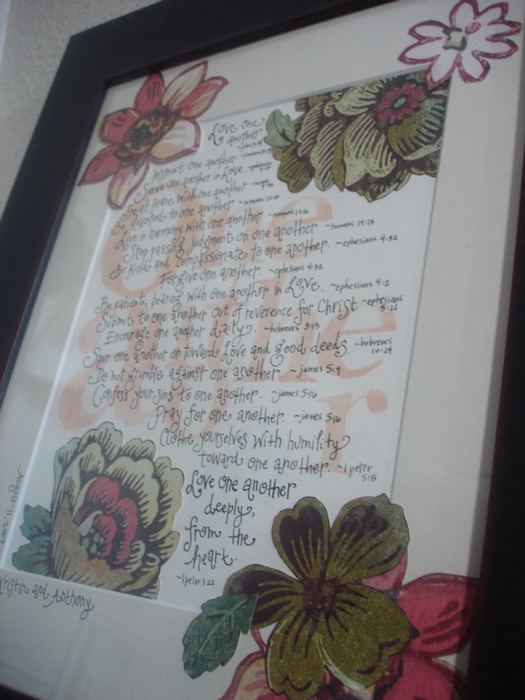 Love one
another
Instruct one another
Serve one another in Love.
Be at peace with one another
Be devoted to one another
Live in harmony with one another
Stop passing judgment on one another. ~romans 14:13
Be kind and compassionate to one another. ~ephesians 4:32
Forgive one another. ~ephesians 4:32
Be patient, bearing with one another in Love. ~ephesians 4:2
Submit to one another out of reverence for Christ. ~ephesians
5:21
Encourage one another daily. ~hebrews 3:13
Spur one another on toward Love and good deeds. ~hebrews
10:24
Do not grumble against one another. ~james 5:9
Confess your sins to one another. ~james 5:16
Pray for one another. ~james 5:16
Clothe yourselves with humility
toward one another. ~1 peter
5:5
Love one another
deeply,
from the
heart.
~1 peter 1:22
Kristin and Anthony